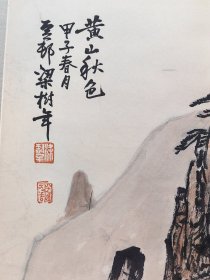 黄山秋色
甲子春月
京邦梁树年